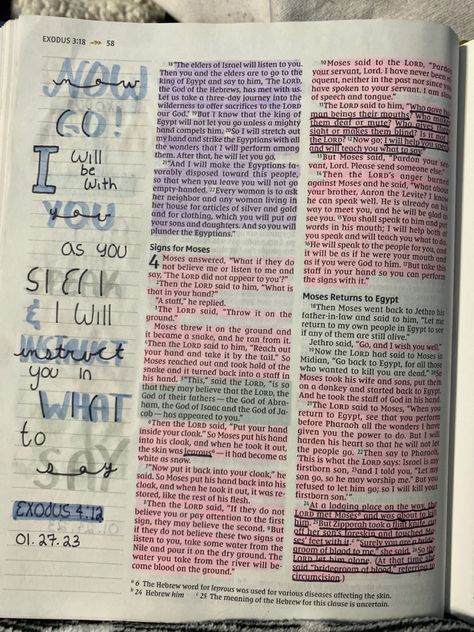 EXODUS 3:18 →→ 58
NOW
GO!
I will
be
with
you
as you
SPEAK
& I will
INSTRUCT
you in
WHAT
to
say
EXODUS 4:12
01.27.23
18“The elders of Israel will listen to you.
Then you and the elders are to go to the
king of Egypt and say to him, ‘The LORD,
the God of the Hebrews, has met with us.
Let us take a three-day journey into the
wilderness to offer sacrifices to the LORD
our God.’ 19But I know that the king of
Egypt will not let you go unless a mighty
hand compels him. 20So I will stretch out
my hand and strike the Egyptians with all
the wonders that I will perform among
them. After that, he will let you go.
21“And I will make the Egyptians fa-
vorably disposed toward this people,
so that when you leave you will not go
empty-handed. 22Every woman is to ask
her neighbor and any woman living in
her house for articles of silver and gold
and for clothing, which you will put on
your sons and daughters. And so you will
plunder the Egyptians.”
Signs for Moses
4 Moses answered, “What if they do
not believe me or listen to me and
say, ‘The LORD did not appear to you’?”
2Then the LORD said to him, “What is
that in your hand?”
“A staff,” he replied.
3The LORD said, “Throw it on the
ground.”
Moses threw it on the ground and
it became a snake, and he ran from it.
4Then the LORD said to him, “Reach out
your hand and take it by the tail.” So
Moses reached out and took hold of the
snake and it turned back into a staff in
his hand. 5“This,” said the LORD, “is so
that they may believe that the LORD, the
God of their fathers — the God of Abra-
ham, the God of Isaac and the God of Ja-
cob — has appeared to you.”
6Then the LORD said, “Put your hand
inside your cloak.” So Moses put his hand
into his cloak, and when he took it out,
the skin was leprous a — it had become as
white as snow.
7“Now put it back into your cloak,” he
said. So Moses put his hand back into his
cloak, and when he took it out, it was re-
stored, like the rest of his flesh.
8Then the LORD said, “If they do not
believe you or pay attention to the first
sign, they may believe the second. 9But
if they do not believe these two signs or
listen to you, take some water from the
Nile and pour it on the dry ground. The
water you take from the river will be-
come blood on the ground.”
10Moses said to the LORD, “Pardon
your servant, Lord. I have never been
eloquent, neither in the past nor since you
have spoken to your servant. I am slow
of speech and tongue.”
11The LORD said to him, “Who gave hu-
man beings their mouths? Who makes
them deaf or mute? Who gives them
sight or makes them blind? Is it not I,
the LORD? 12Now go; I will help you speak
and will teach you what to say.”
13But Moses said, “Pardon your ser-
vant, Lord. Please send someone else.”
14Then the LORD’s anger burned
against Moses and he said, “What about
your brother, Aaron the Levite? I know
he can speak well. He is already on his
way to meet you, and he will be glad to
see you. 15You shall speak to him and put
words in his mouth; I will help both of
you speak and will teach you what to do.
16He will speak to the people for you, and
it will be as if he were your mouth and
as if you were God to him. 17But take this
staff in your hand so you can perform
the signs with it.”
Moses Returns to Egypt
18Then Moses went back to Jethro his
father-in-law and said to him, “Let me
return to my own people in Egypt to see
if any of them are still alive.”
Jethro said, “Go, and I wish you well.”
19Now the LORD had said to Moses in
Midian, “Go back to Egypt, for all those
who wanted to kill you are dead.” 20So
Moses took his wife and sons, put them
on a donkey and started back to Egypt.
And he took the staff of God in his hand.
21The LORD said to Moses, “When you
return to Egypt, see that you perform
before Pharaoh all the wonders I have
given you the power to do. But I will
harden his heart so that he will not let
the people go. 22Then say to Pharaoh,
‘This is what the LORD says: Israel is my
firstborn son, 23and I told you, “Let my
son go, so he may worship me.” But you
refused to let him go; so I will kill your
firstborn son.’”
24At a lodging place on the way, the
LORD met Moses b and was about to kill
him. 25But Zipporah took a flint knife, cut
off her son’s foreskin and touched Mo-
ses’ feet with it. c “Surely you are a bride-
groom of blood to me,” she said. 26So the
LORD let him alone. (At that time she
said “bridegroom of blood,” referring to
circumcision.)
a 6 The Hebrew word for leprous was used for various diseases affecting the skin.
b 24 Hebrew him c 25 The meaning of the Hebrew for this clause is uncertain.